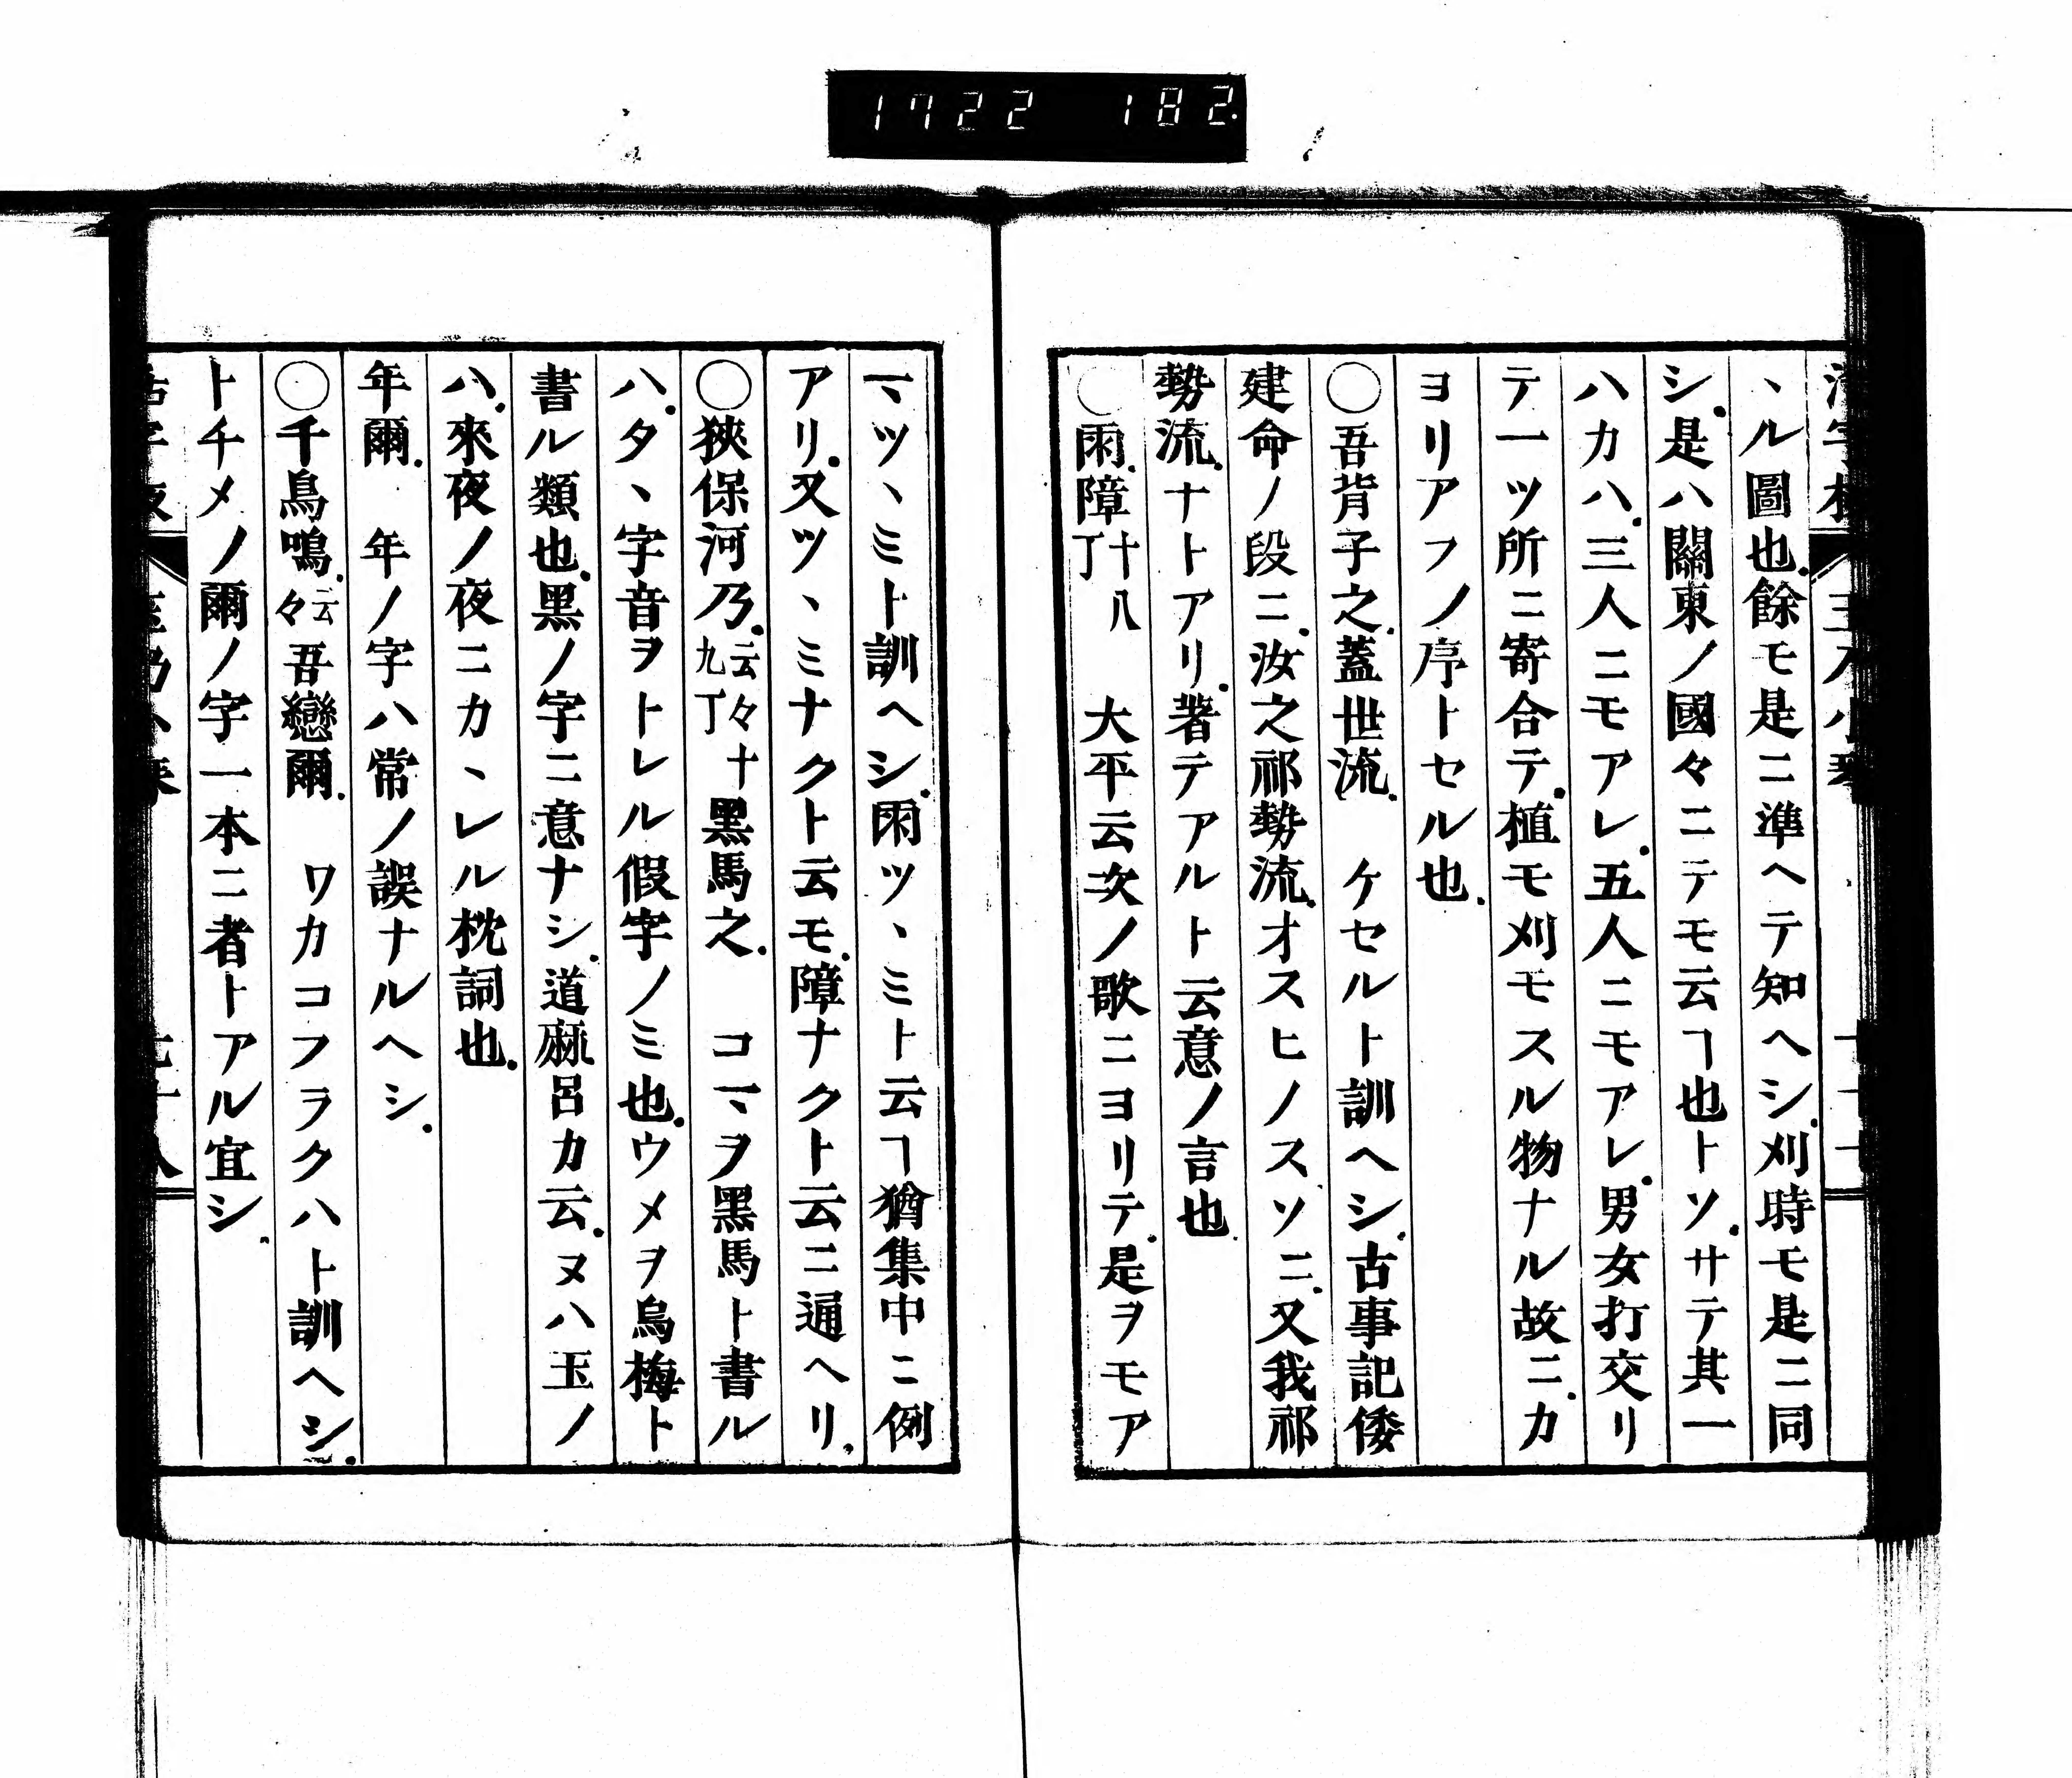 1722 182
ヽル圖也.餘モ是ニ準ヘテ知ヘシ.刈時モ是ニ同
シ.是ハ關東ノ國々ニテモ云ヿ也トソ.サテ其一
ハカハ.三人ニモアレ.五人ニモアレ.男女打交リ
テ一ツ所ニ寄合テ.植モ刈モスル物ナル故ニ.カ
ヨリアフノ序トセル也.
○吾背子之.蓋世流.　ケセルト訓ヘシ.古事記倭
建命ノ段ニ.汝之祁勢流.オスヒノスソニ.又我祁
勢流.ナトアリ.著テアルト云意ノ言也.
○雨.障十八丁　大平云次ノ歌ニヨリテ.是ヲモア
マツヽミト訓ヘシ.雨ツヽミト云ヿ猶集中ニ例
アリ.又ツヽミナクト云モ.障ナクト云ニ通ヘリ.
○狹保河乃.云々十九丁黑馬之.　コマヲ黑馬ト書ル
ハ.タヽ字音ヲトレル假字ノミ也.ウメヲ烏梅ト
書ル類也.黑ノ字ニ意ナシ.道麻呂カ云.ヌハ玉ノ
ハ.來夜ノ夜ニカヽレル枕詞也.
年爾.　年ノ字ハ常ノ誤ナルヘシ.
○千鳥鳴.云々吾戀爾.　ワカコフラクハト訓ヘシ.
トチメノ爾ノ字一本ニ者トアル宜シ.